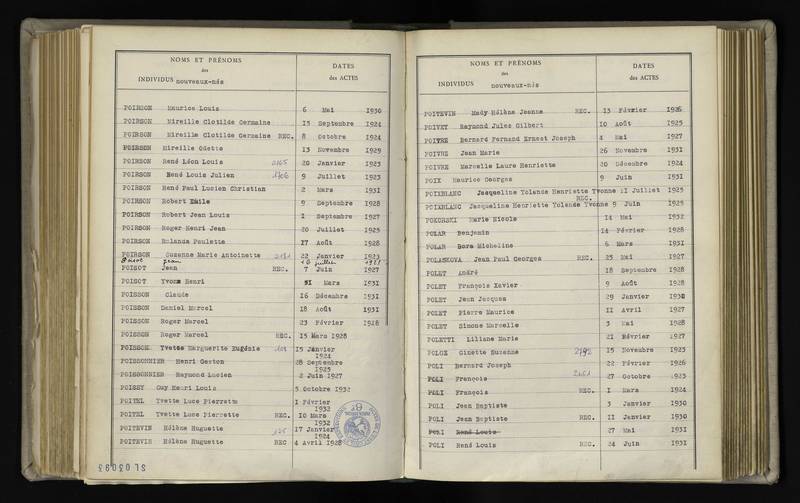 NOMS ET PRÉNOMS
des
INDIVIDUS nouveaux-nés
DATES
des ACTES
POIRSON Maurice Louis 6 Mai 1930
POIRSON Mireille Clotilde Germaine 15 Septembre 1924
POIRSON Mireille Clotilde Germaine REC. 8 Octobre 1924
POIRSON Mireille Odette 13 Novembre 1929
POIRSON René Léon Louis 20 Janvier 1923
POIRSON René Louis Julien 9 Juillet 1923
POIRSON René Paul Lucien Christian 2 Mars 1931
POIRSON Robert Emile 9 Septembre 1928
POIRSON Robert Jean Louis 1 Septembre 1927
POIRSON Roger Henri Jean 20 Juillet 1925
POIRSON Rolande Paulette 17 Août 1928
POIRSON Suzanne Marie Antoinette 22 Janvier 1923
Poisot Jean juillet
POISOT Jean REC. 7 Juin 1927
POISOT Yvon Henri 31 Mars 1931
POISSON Claude 16 Décembre 1931
POISSON Daniel Marcel 18 Août 1931
POISSON Roger Marcel 23 Février 1928
POISSON Roger Marcel REC. 15 Mars 1928
POISSON Yvette Marguerite Eugénie 15 Janvier 1924
POISSONNIER Henri Gaston 28 Septembre 1925
POISSONNIER Raymond Lucien 2 Juin 1927
POISSY Guy Henri Louis 5 Octobre 1932
POITEL Yvette Luce Pierrette 1 Février 1932
POITEL Yvette Luce Pierrette REC. 10 Mars 1932
POITEVIN Hélène Huguette 17 Janvier 1924
POITEVIN Hélène Huguette REC 4 Avril 1928
NOMS ET PRÉNOMS
des
INDIVIDUS nouveaux-nés
DATES
des ACTES
POITEVIN Mady Hélène Jeanne REC. 13 Février 1926
POIVET Raymond Jules Gilbert 10 Août 1925
POIVRE Bernard Fernand Ernest Joseph 4 Mai 1927
POIVRE Jean Marie 26 Novembre 1931
POIVRE Marcelle Laure Henriette 20 Décembre 1924
POIX Maurice Georges 9 Juin 1931
POIXBLANC Jacqueline Yolande Henriette Yvonne 11 Juillet 1925
REC.
POIXBLANC Jacqueline Henriette Yolande Yvonne 9 Juin 1925
POKORSKI Marie Nicole 14 Mai 1932
POLAR Benjamin 14 Février 1928
POLAR Dora Micheline 6 Mars 1931
POLASKOVA Jean Paul Georges REC. 25 Mai 1927
POLET André 18 Septembre 1928
POLET François Xavier 9 Août 1928
POLET Jean Jacques 29 Janvier 1930
POLET Pierre Maurice 11 Avril 1927
POLET Simone Marcelle 3 Mai 1928
POLETTI Liliane Marie 21 Février 1927
POLGE Ginette Suzanne 2792 15 Novembre 1923
POLI Bernard Joseph 22 Février 1926
POLI François 27 Octobre 1923
POLI François REC. 1 Mars 1924
POLI Jean Baptiste 3 Janvier 1930
POLI Jean Baptiste REC. 11 Janvier 1930
POLI René Louis 27 Mai 1931
POLI René Louis REC. 24 Juin 1931